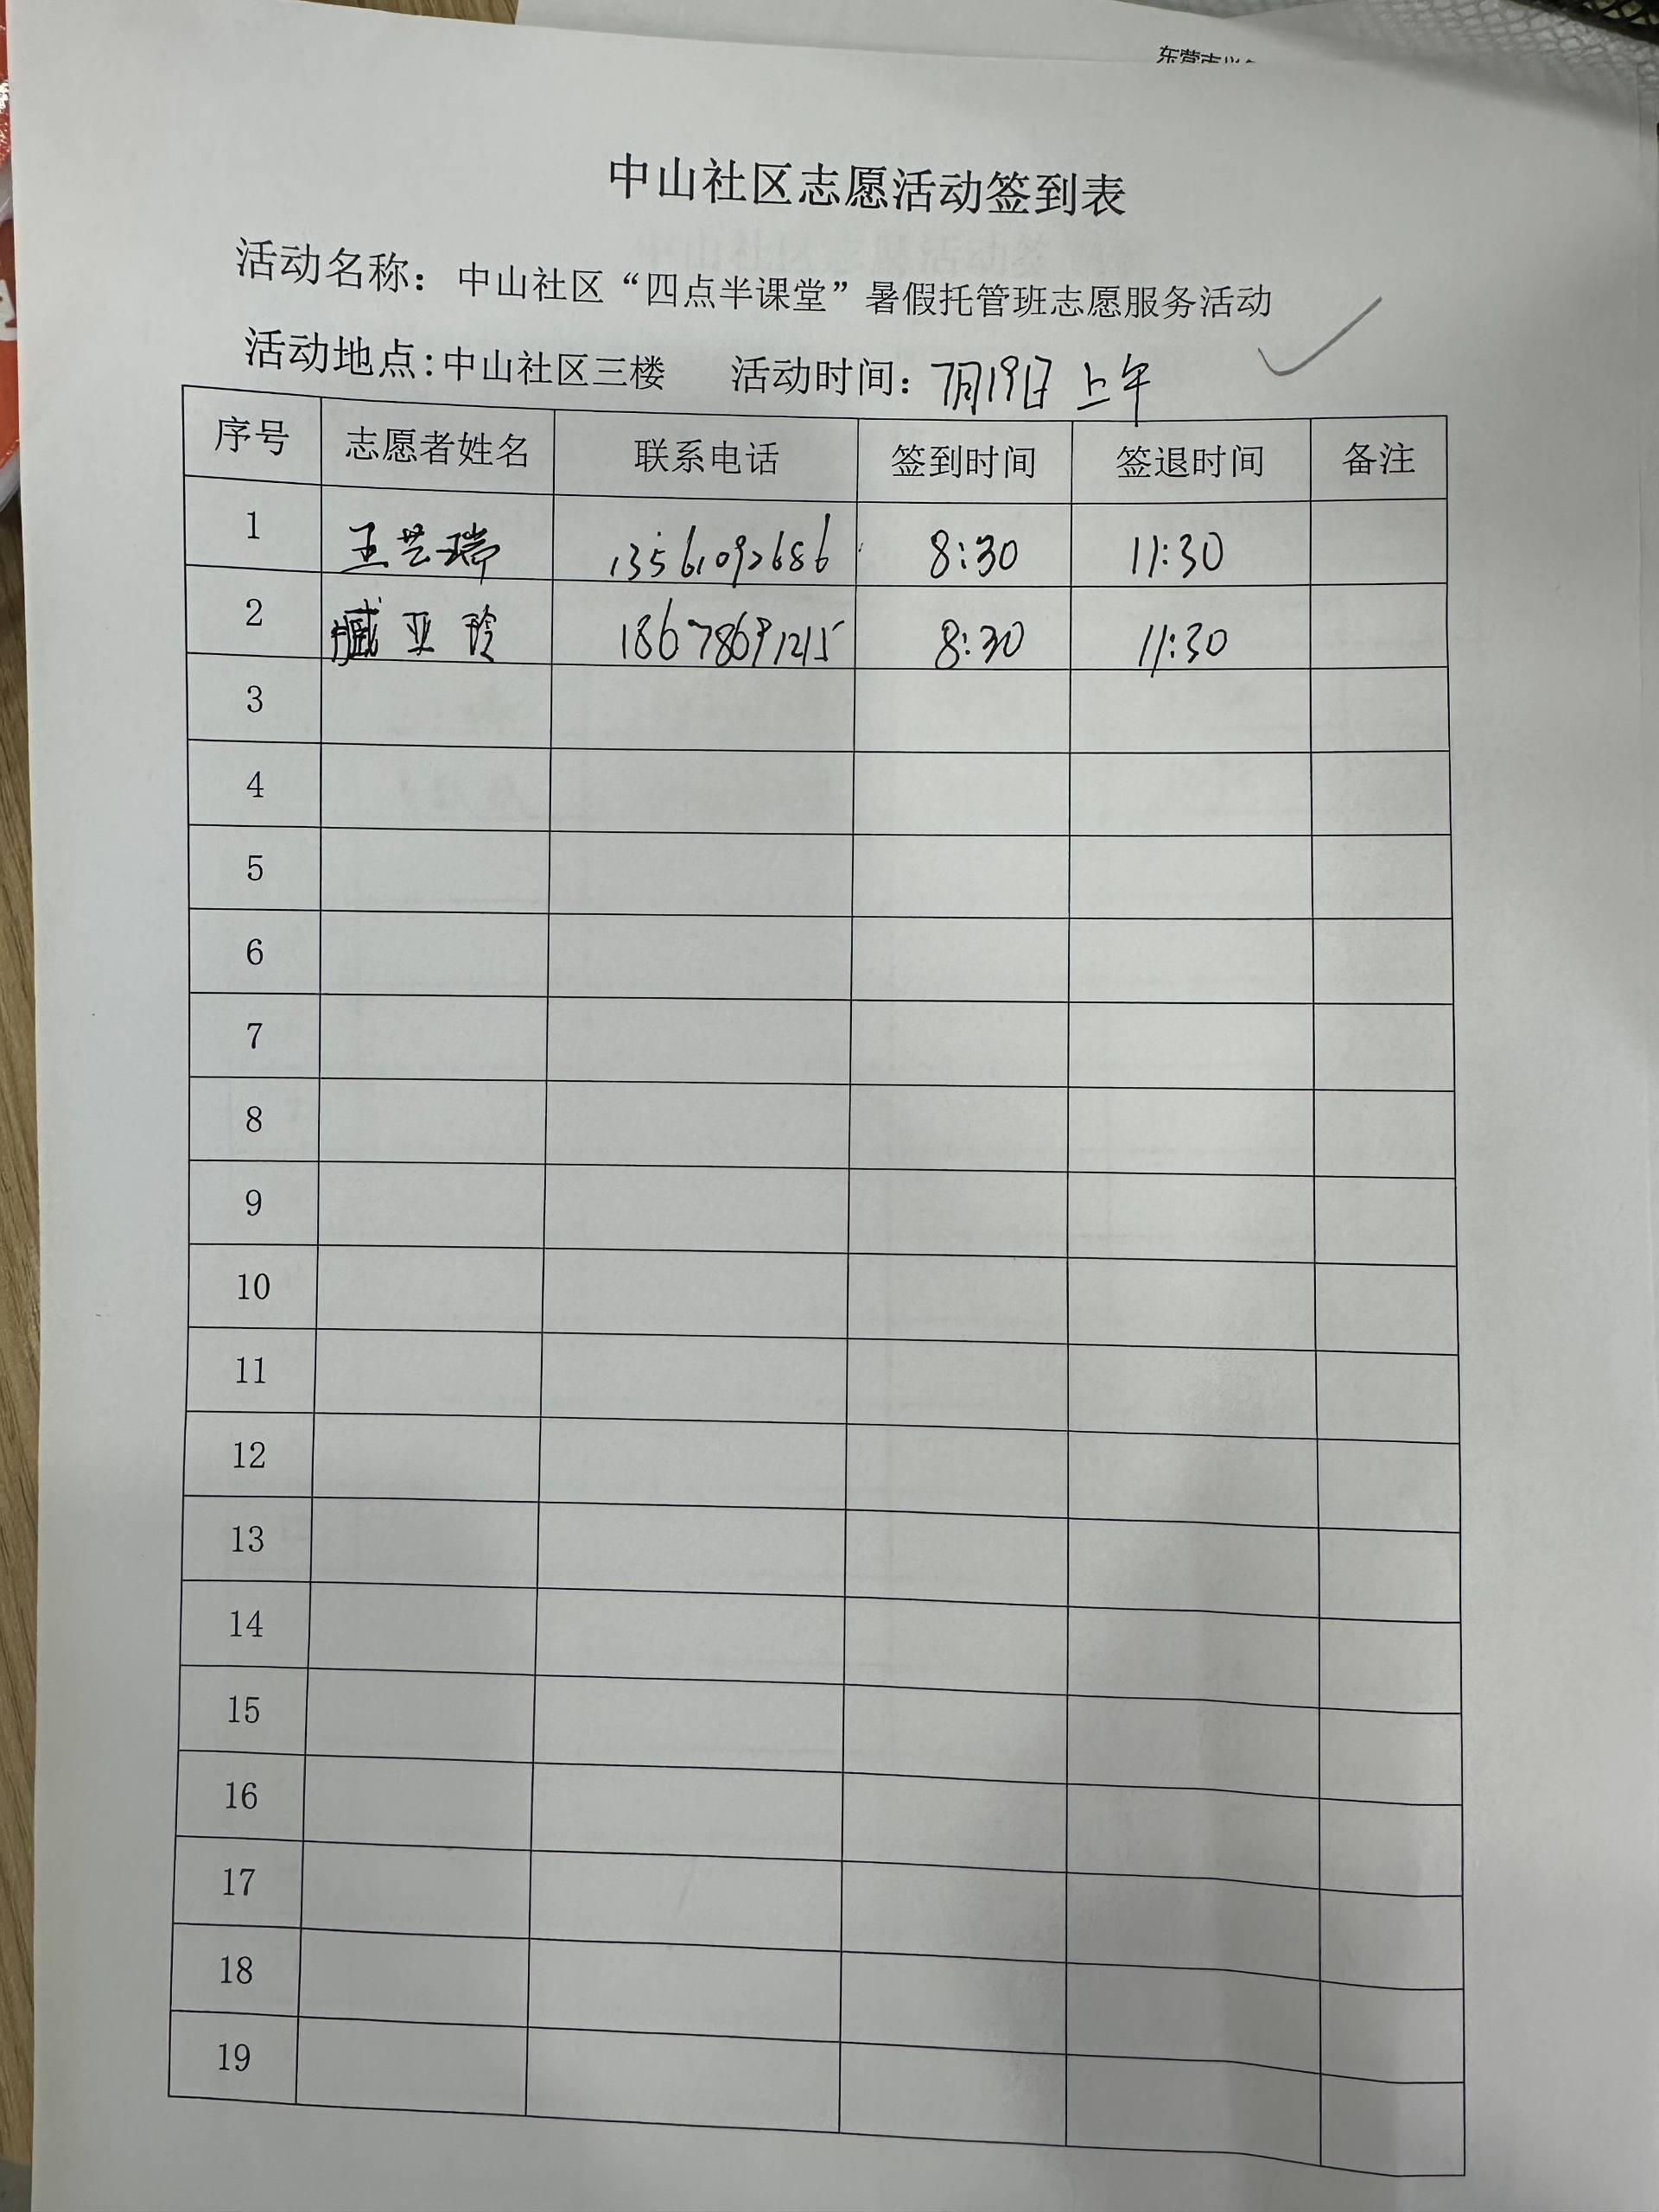 中山社区志愿活动签到表
活动名称：中山社区“四点半课堂”暑假托管班志愿服务活动
活动地点：中山社区三楼 活动时间：7月19日 上午
序号 志愿者姓名 联系电话 签到时间 签退时间 备注
1 王艺瑞 13561092686 8:30 11:30
2 臧亚玲 18678691215 8:30 11:30
3
4
5
6
7
8
9
10
11
12
13
14
15
16
17
18
19